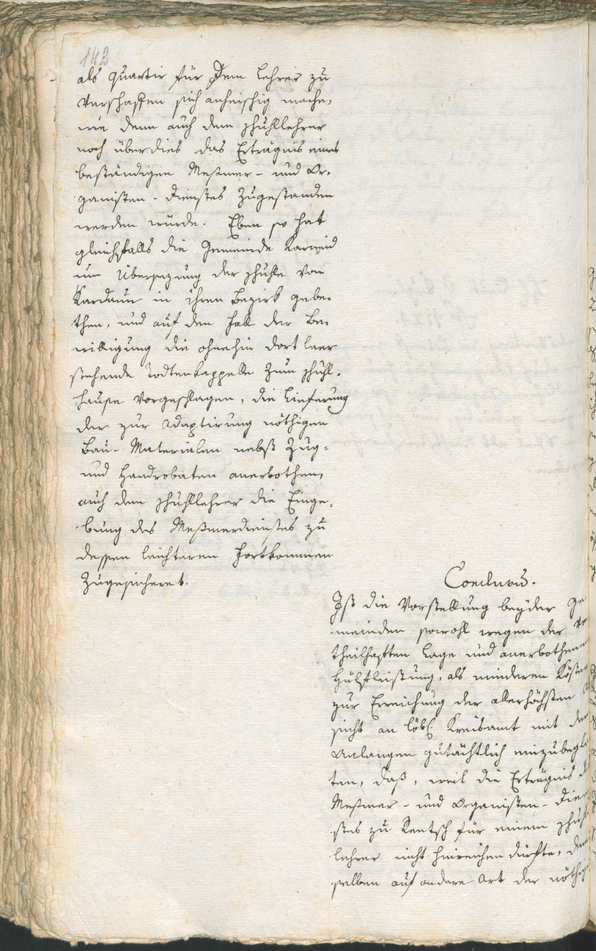 142
als Quartir für dem Lehrer zu
verschaffen sich anheischig mache,
wie denn auch dem Schullehrer
noch überdies das Erträgnis eines
beständigen Meßmer- und Or-
ganisten-Dienstes zugestanden
werden würde. Eben so hat
gleichfalls die Gemeinde Karneid
um Übersezung der Schule von
Kardaun in ihren Bezirk gebe-
then, und auf den Fall der Be-
willigung die ohnehin dort leer
stehende Todtenkappelle zum Schul-
hause vorgeschlagen, die Lieferung
der zur Adaptirung nöthigen
Bau-Materialen nebst Zug-
und Handrobaten anerbothen,
auch dem Schullehrer die Einge-
bung des Meßmerdienstes zu
dessen leichteren Fortkommen
zugesicheret.
Conclusum.
Ist die Vorstellung beyder Ge
meinden sowohl wegen der
theilhaften Lage und anerbothenen
Hülfleistung, als minderen Kösten
zur Erreichung der allerhöchsten
sicht an löbl. Kreisamt mit dem
Anlangen gutächtlich einzubegl
ten, daß, weil die Erträgnis
Meßmer- und Organisten-Dien
stes zu Rentsch für einem Schul
lehrer nicht hinreichen dürfte, dem
selben auf andere Art der nöthige